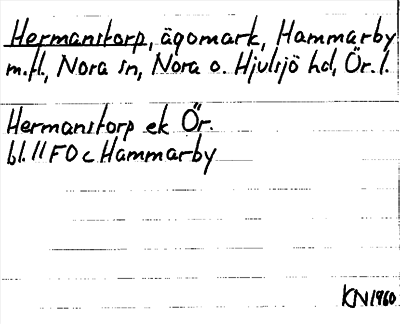 Hermanstorp, ägomark, Hammarby
m.fl., Nora sn, Nora o. Hjulsjö hd, Ör. l.
Hermanstorp ek Ör.
bl. 11 F0 c Hammarby
KN 1960